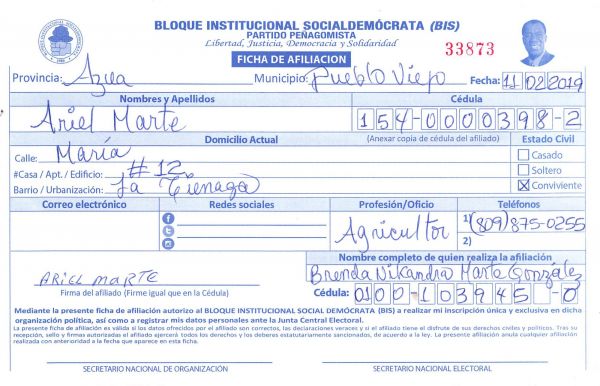 BLOQUE INSTITUCIONAL SOCIALDEMÓCRATA (BIS)
PARTIDO PEÑAGOMISTA
Libertad, Justicia, Democracia y Solidaridad
33873
FICHA DE AFILIACION
Provincia: Azua Municipio: Pueblo Viejo Fecha: 11 02 2019
Nombres y Apellidos Cédula
Ariel Marte 154-0000398-2
Domicilio Actual (Anexar copia de cédula del afiliado) Estado Civil
Calle: María Casado
#Casa / Apt. / Edificio: #12 Soltero
Barrio / Urbanización: La Cienaga X Conviviente
Correo electrónico Redes sociales Profesión/Oficio Teléfonos
Agricultor 1) (809) 875-0255
2)
Nombre completo de quien realiza la afiliación
ARIEL MARTE Brenda Nikandra Marte González
Firma del afiliado (Firme igual que en la Cédula) Cédula: 0100-103945-0
Mediante la presente ficha de afiliación autorizo al BLOQUE INSTITUCIONAL SOCIAL DEMÓCRATA (BIS) a realizar mi inscripción única y exclusiva en dicha
organización política, así como a registrar mis datos personales ante la Junta Central Electoral.
La presente ficha de afiliación es válida si los datos ofrecidos por el afiliado son correctos, las declaraciones veraces y si el afiliado tiene el disfrute de sus derechos civiles y políticos. Tras su
recepción, sello y firmas autorizadas el afiliado ejercerá todos los derechos y los deberes estatutariamente sancionados, de acuerdo a la ley. La presente afiliación anula cualquier afiliación
realizada con anterioridad a la fecha que aparece en esta ficha.
SECRETARIO NACIONAL DE ORGANIZACIÓN SECRETARIO NACIONAL ELECTORAL